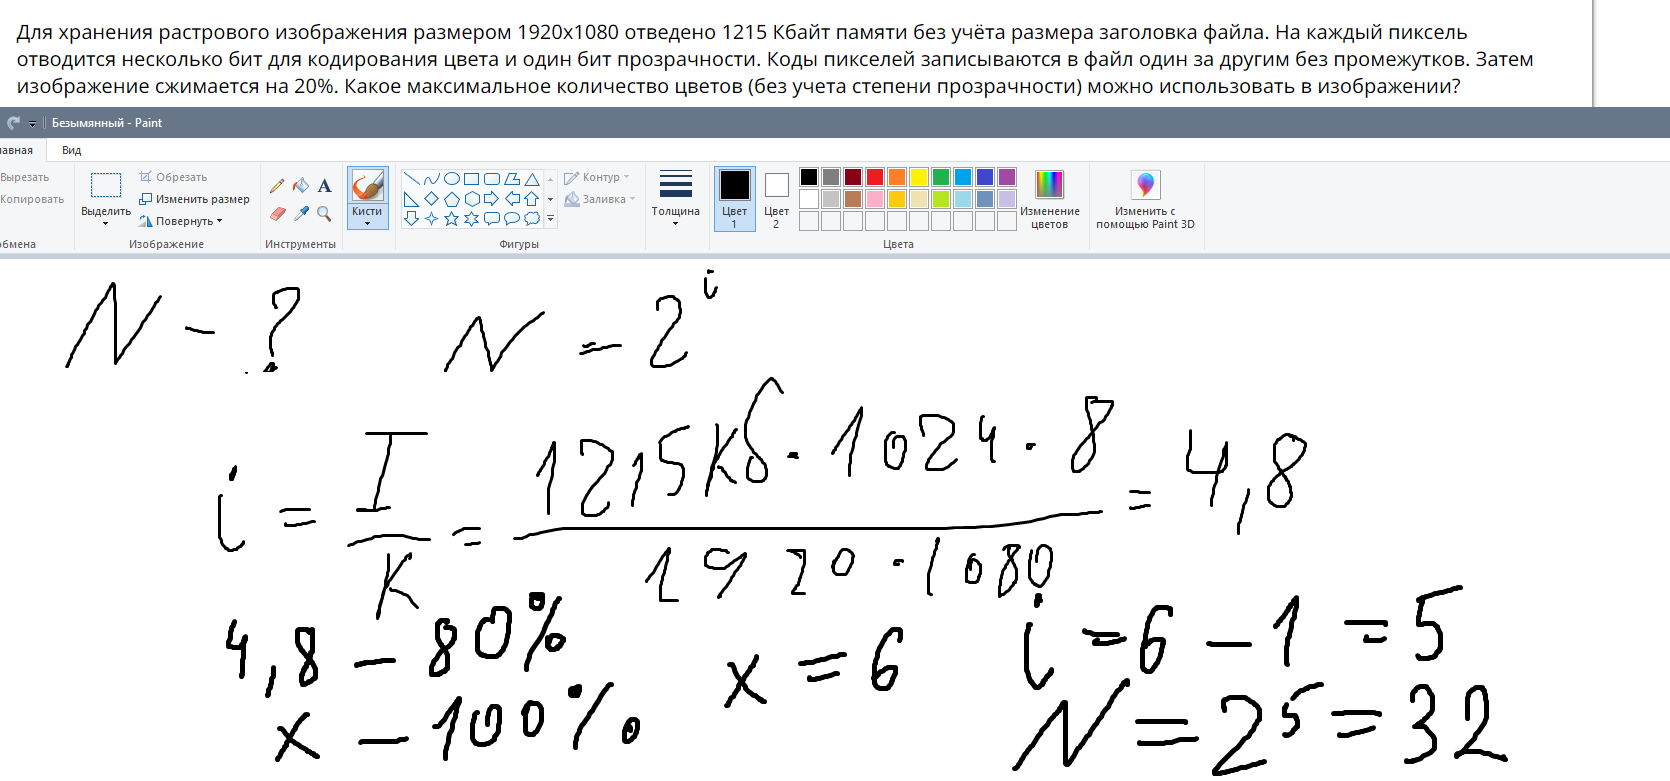 Для хранения растрового изображения размером 1920x1080 отведено 1215 Кбайт памяти без учёта размера заголовка файла. На каждый пиксель
отводится несколько бит для кодирования цвета и один бит прозрачности. Коды пикселей записываются в файл один за другим без промежутков. Затем
изображение сжимается на 20%. Какое максимальное количество цветов (без учета степени прозрачности) можно использовать в изображении?
Безымянный - Paint
лавная Вид
Вырезать
Копировать
обмена
Выделить
Обрезать
Изменить размер
Повернуть
Изображение
A
Инструменты
Кисти
Контур
Заливка
Фигуры
Толщина
Цвет
1
Цвет
2
Изменение
цветов
Цвета
Изменить с
помощью Paint 3D
N - ? N = 2^i
i = I/K = 1215Кб · 1024 · 8 / 1920 · 1080 = 4,8
4,8 – 80%
x – 100%
x = 6
i = 6 – 1 = 5
N = 2^5 = 32